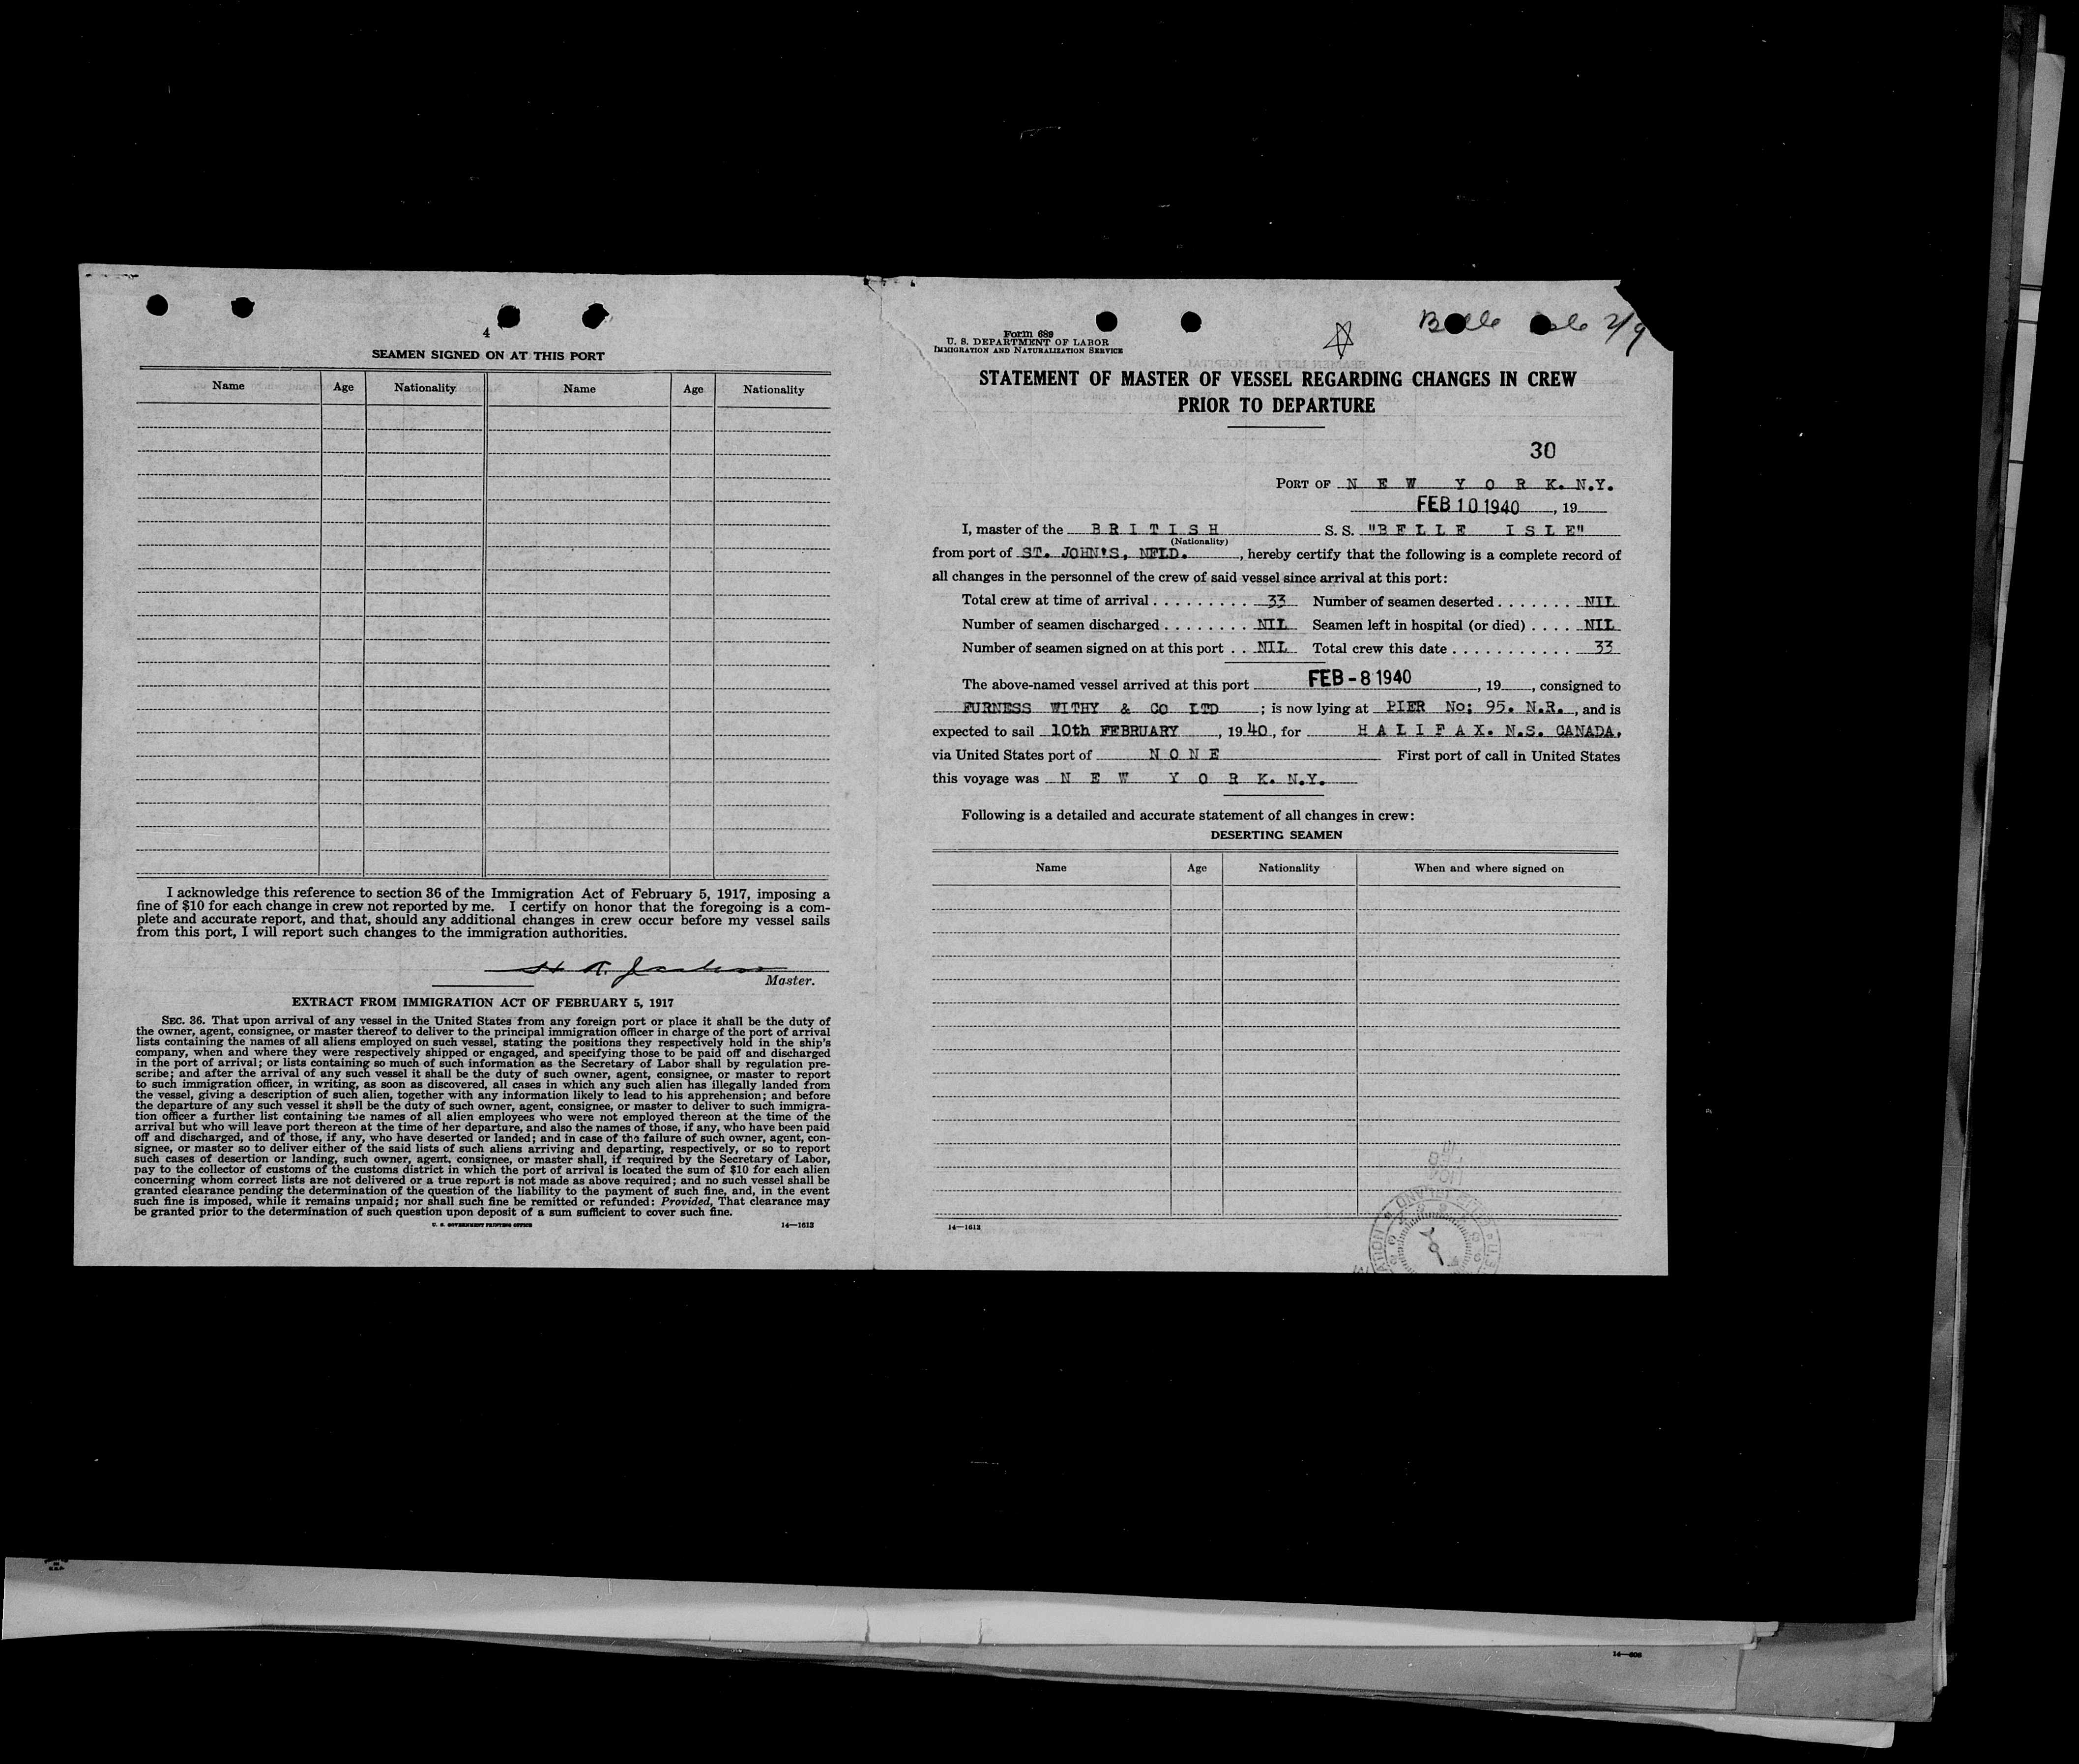 4
SEAMEN SIGNED ON AT THIS PORT
Name Age Nationality Name Age Nationality
I acknowledge this reference to section 36 of the Immigration Act of February 5, 1917, imposing a
fine of $10 for each change in crew not reported by me. I certify on honor that the foregoing is a com-
plete and accurate report, and that, should any additional changes in crew occur before my vessel sails
from this port, I will report such changes to the immigration authorities.
Master.
EXTRACT FROM IMMIGRATION ACT OF FEBRUARY 5, 1917
SEC. 36. That upon arrival of any vessel in the United States from any foreign port or place it shall be the duty of
the owner, agent, consignee, or master thereof to deliver to the principal immigration officer in charge of the port of arrival
lists containing the names of all aliens employed on such vessel, stating the positions they respectively hold in the ship's
company, when and where they were respectively shipped or engaged, and specifying those to be paid off and discharged
in the port of arrival; or lists containing so much of such information as the Secretary of Labor shall by regulation pre-
scribe; and after the arrival of any such vessel it shall be the duty of such owner, agent, consignee, or master to report
to such immigration officer, in writing, as soon as discovered, all cases in which any such alien has illegally landed from
the vessel, giving a description of such alien, together with any information likely to lead to his apprehension; and before
the departure of any such vessel it shall be the duty of such owner, agent, consignee, or master to deliver to such immigra-
tion officer a further list containing the names of all alien employees who were not employed thereon at the time of the
arrival but who will leave port thereon at the time of her departure, and also the names of those, if any, who have been paid
off and discharged, and of those, if any, who have deserted or landed; and in case of the failure of such owner, agent, con-
signee, or master so to deliver either of the said lists of such aliens arriving and departing, respectively, or so to report
such cases of desertion or landing, such owner, agent, consignee, or master shall, if required by the Secretary of Labor,
pay to the collector of customs of the customs district in which the port of arrival is located the sum of $10 for each alien
concerning whom correct lists are not delivered or a true report is not made as above required; and no such vessel shall be
granted clearance pending the determination of the question of the liability to the payment of such fine, and, in the event
such fine is imposed, while it remains unpaid; nor shall such fine be remitted or refunded: Provided, That clearance may
be granted prior to the determination of such question upon deposit of a sum sufficient to cover such fine.
U. S. GOVERNMENT PRINTING OFFICE 14—1613
Form 689
U. S. DEPARTMENT OF LABOR
IMMIGRATION AND NATURALIZATION SERVICE
Belle Isle 2/9
STATEMENT OF MASTER OF VESSEL REGARDING CHANGES IN CREW
PRIOR TO DEPARTURE
30
PORT OF NEW YORK. N.Y.
FEB 10 1940, 19
I, master of the BRITISH S. S. "BELLE ISLE"
(Nationality)
from port of ST. JOHN'S, NFLD., hereby certify that the following is a complete record of
all changes in the personnel of the crew of said vessel since arrival at this port:
Total crew at time of arrival . . . . . . . . . 33 Number of seamen deserted . . . . . . . NIL
Number of seamen discharged . . . . . . . . NIL Seamen left in hospital (or died) . . . . NIL
Number of seamen signed on at this port . . NIL Total crew this date . . . . . . . . . . . 33
The above-named vessel arrived at this port FEB - 8 1940, 19, consigned to
FURNESS WITHY & CO LTD ; is now lying at PIER No; 95. N.R., and is
expected to sail 10th FEBRUARY, 1940, for HALIFAX. N.S. CANADA.
via United States port of NONE First port of call in United States
this voyage was NEW YORK. N.Y.
Following is a detailed and accurate statement of all changes in crew:
DESERTING SEAMEN
Name Age Nationality When and where signed on
14—1613